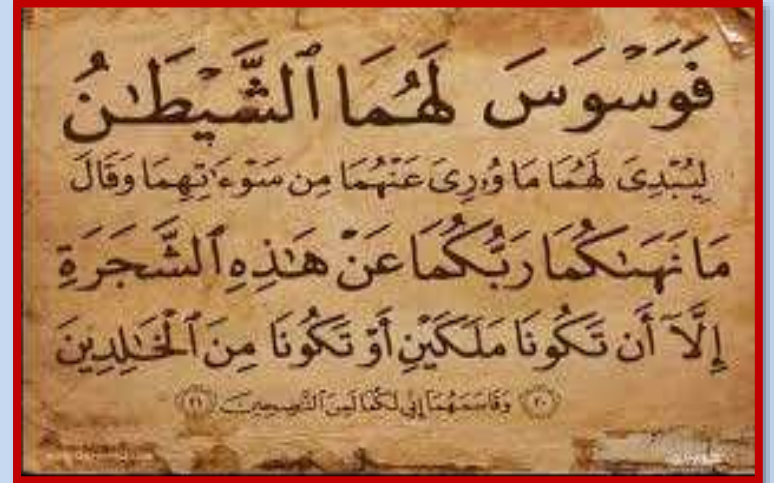 فَوَسْوَسَ لَهُمَا ٱلشَّيْطَـٰنُ
لِيُبْدِىَ لَهُمَا مَا وُۥرِىَ عَنْهُمَا مِن سَوْءَٰتِهِمَا وَقَالَ
مَا نَهَىٰكُمَا رَبُّكُمَا عَنْ هَـٰذِهِ ٱلشَّجَرَةِ
إِلَّآ أَن تَكُونَا مَلَكَيْنِ أَوْ تَكُونَا مِنَ ٱلْخَـٰلِدِينَ
٢٠ وَقَاسَمَهُمَآ إِنِّى لَكُمَا لَمِنَ ٱلنَّـٰصِحِينَ ٢١